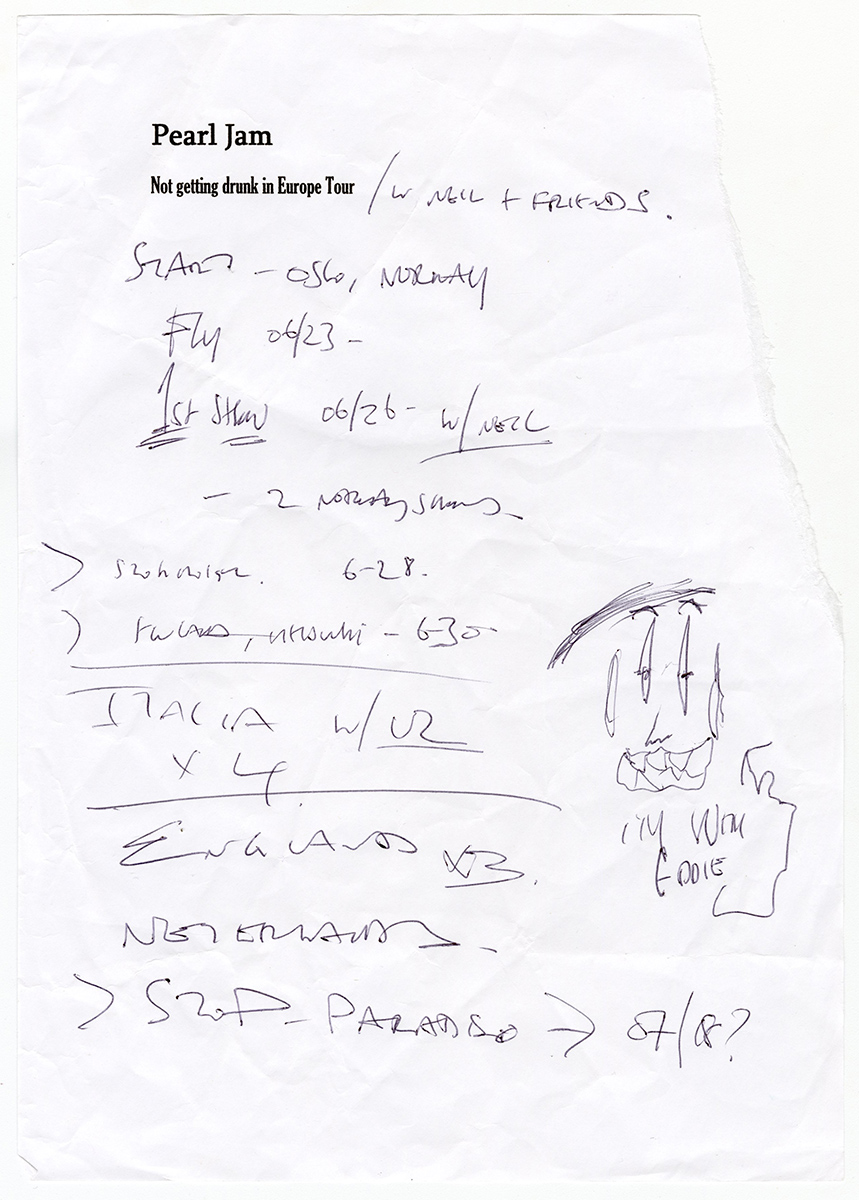 Pearl Jam
Not getting drunk in Europe Tour / W NEIL + FRIENDS.
START - OSLO, NORWAY
Fly 06/23 -
1st SHOW 06/26 - W/ NEIL
- 2 NORWAY SHOWS -
> 6-28.
> FINLAND, HELSINKI - 6-30
ITALIA W/ U2
X 4
ENGLAND X3.
I'M WITH
EDDIE
NETERLANDS -
> STOP - PARADISO → 07/08?